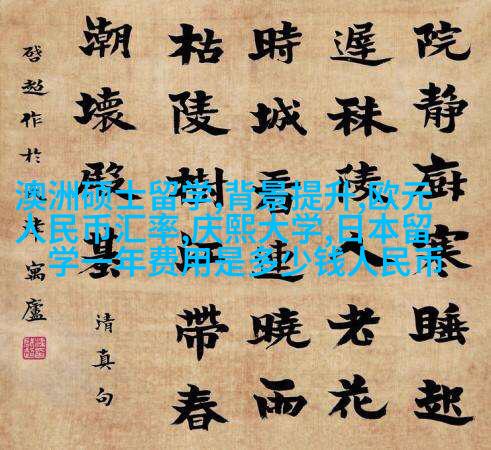 院靜廚寒睡起
遲秣陵人老花
時城看連曉雨
枯陵樹江帶春
潮壞殿基
清真句
啓超作於寓廬
澳洲硕士留学,背景提升,欧元
人民币汇率,庆熙大学,日本留
学一年费用是多少钱人民币